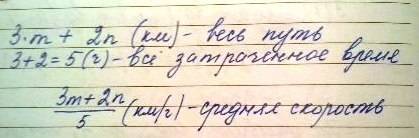 3·m + 2n (км) - весь путь
3+2=5(ч) - всё затраченное время
3m+2n
5
(км/ч) - средняя скорость